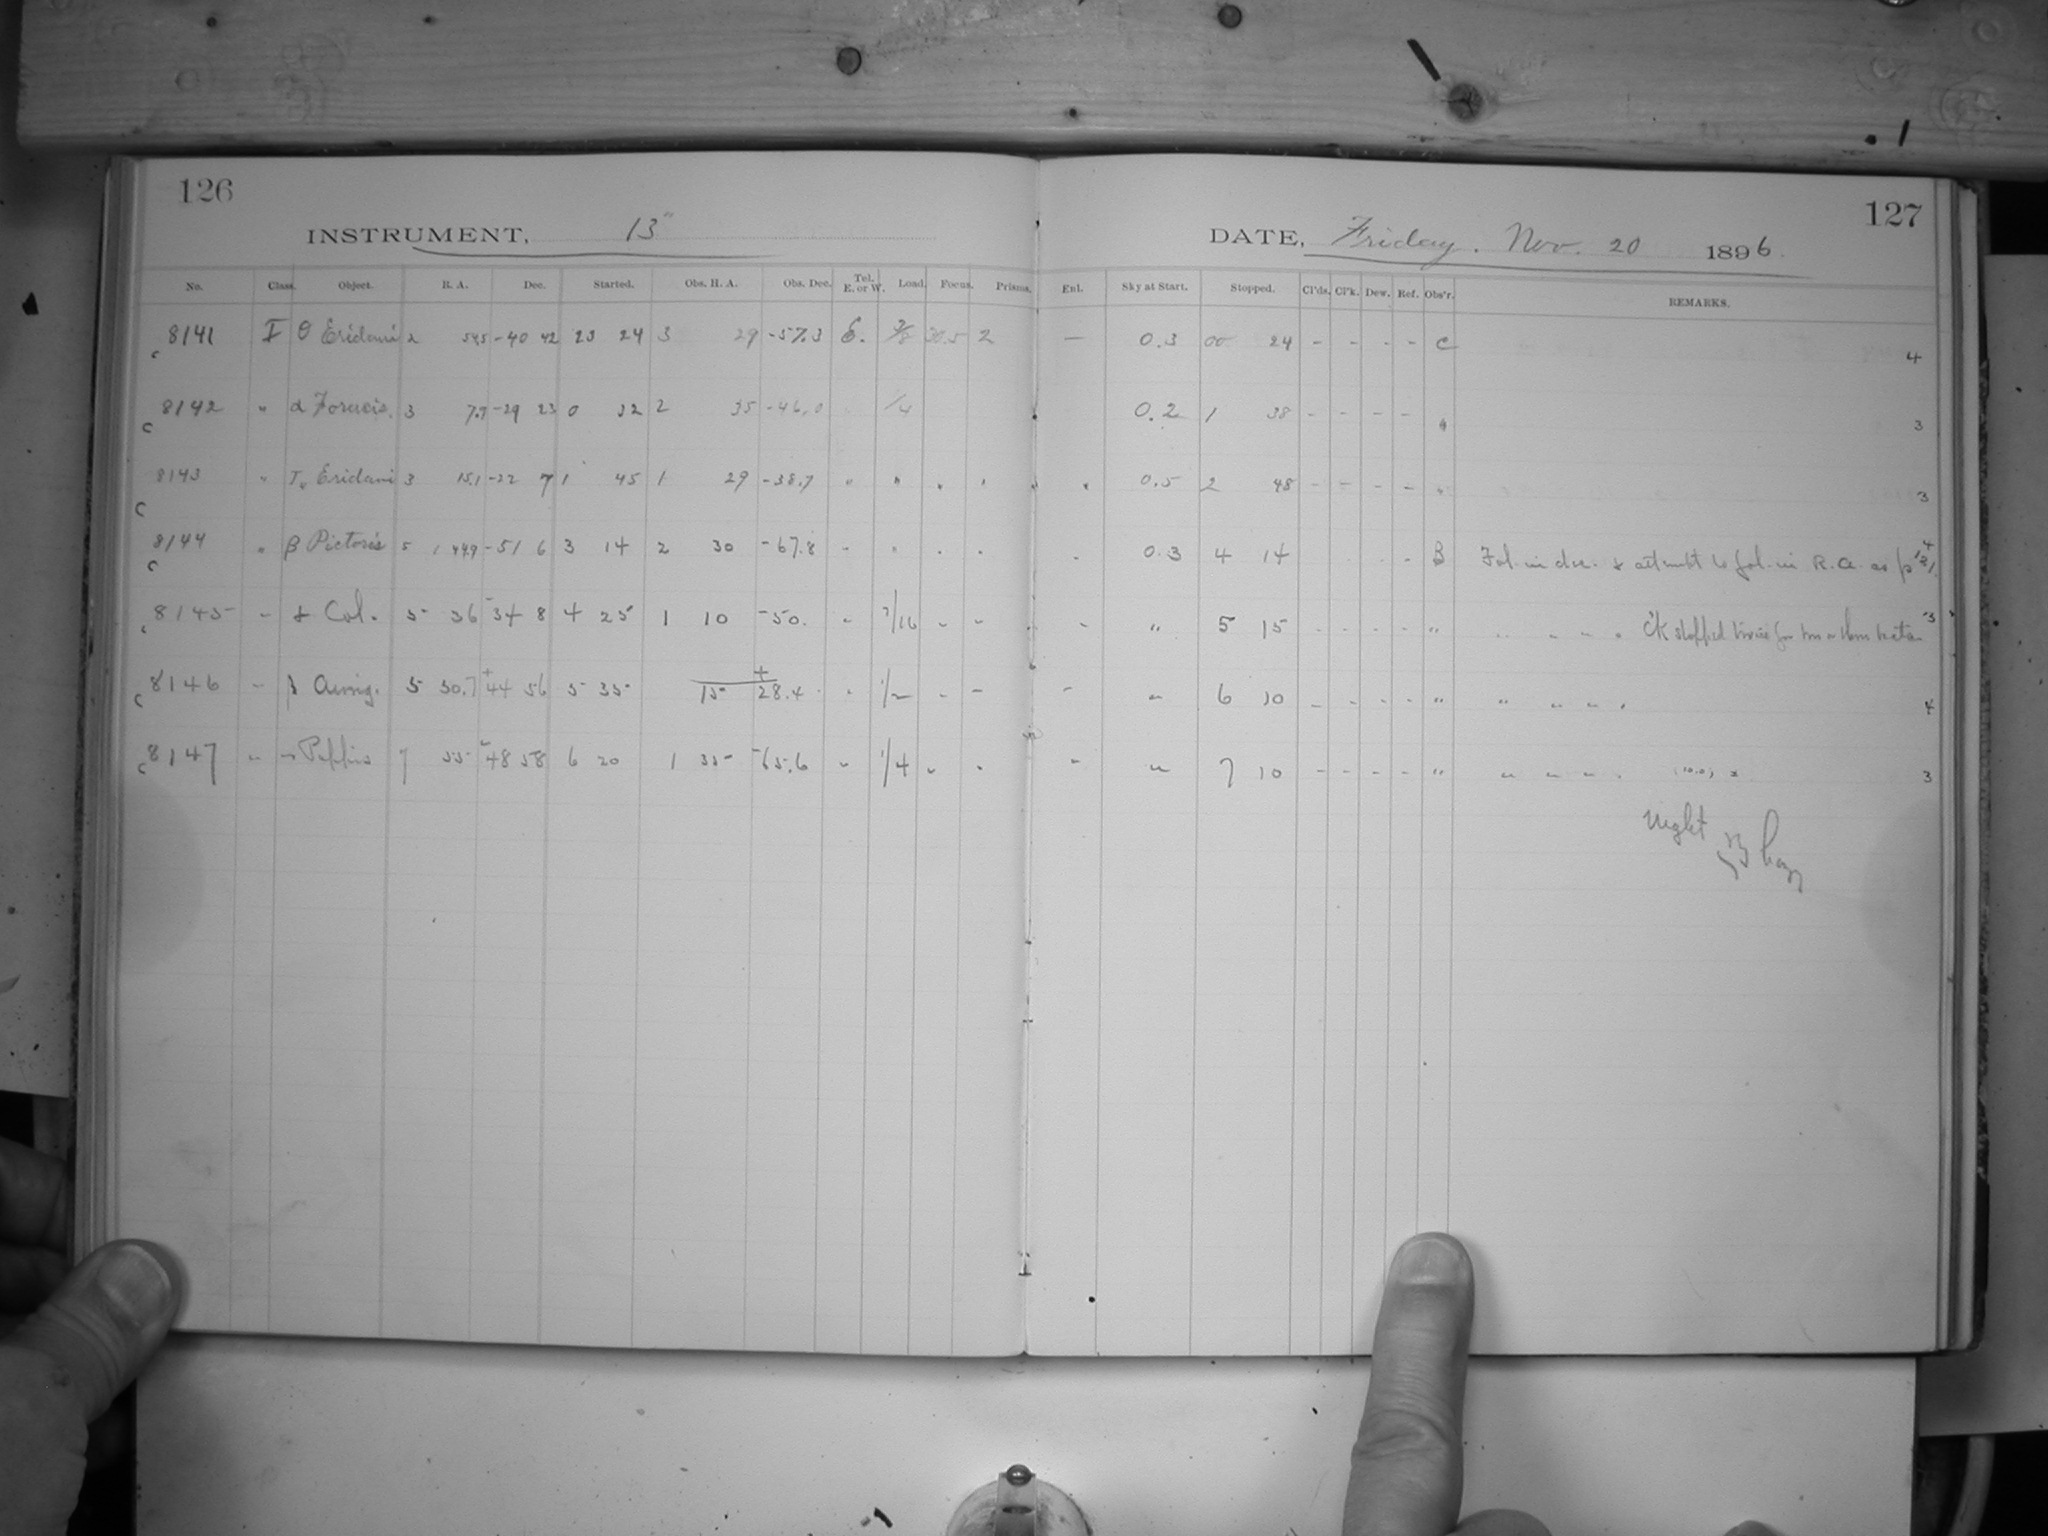 126
127
INSTRUMENT, 13"
DATE, Friday. Nov. 20 1896.
No. Class. Object. R. A. Dec. Started. Obs. H. A. Obs. Dec. Tel. E. or W. Load. Focus. Prisms. Enl. Sky at Start. Stopped. Cl'ds. Cl'k. Dew. Ref. Obs'r. REMARKS.
c 8141 I θ Eridani 2 54.5 -40 42 23 24 3 29 -57.3 E. 30.5 2 — 0.3 00 24 - - - - C 4
c 8142 " α Fornacis. 3 7.7 -29 23 0 32 2 35 -46.0 1/4 0.2 1 38 - - - - " 3
c 8143 " Eridani 3 15.1 -22 7 1 45 1 29 -38.7 " " " " " 0.5 2 48 - - - - " 3
c 8144 " β Pictoris 5 44.9 -51 6 3 14 2 30 -67.8 " " " " " 0.3 4 14 - B Fol. in dec. & attempt to fol. in R.A. as p 121. 4
c 8145 " Col. 5 36 -34 8 4 25 1 10 -50. " 7/16 " " " " 5 15 - - - - " " " " " Ck stopped twice for 3
c 8146 " Aurig. 5 50.7 +44 56 5 35 15 +28.4 " 1/2 " " " " 6 10 - - - - " " " " " 4
c 8147 " Puppis 7 55 -48 58 6 20 1 35 -65.6 " 1/4 " " " " 7 10 - - - - " " " " " (10.0) x 3
Night hazy